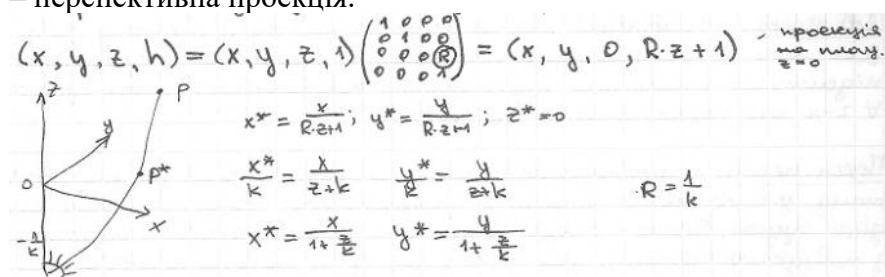 – перспективна проекція.
(x, y, z, h) = (x, y, z, 1) (1 0 0 0 / 0 1 0 0 / 0 0 0 R / 0 0 0 1) = (x, y, 0, R·z+1) - проекція на площ. z=0
z P
y x* = x/(R·z+1); y* = y/(R·z+1); z* = 0
0 P* x*/k = x/(z+k) y*/k = y/(z+k) R = 1/k
x
-1/k x* = x/(1+z/k) y* = y/(1+z/k)